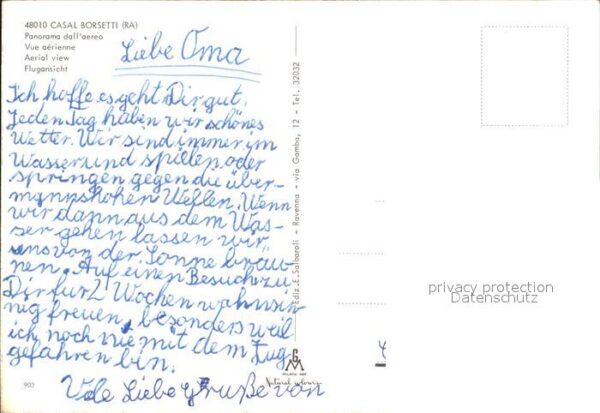 48010 CASAL BORSETTI (RA)
Panorama dall'aereo
Vue aérienne
Aerial view
Flugansicht
Liebe Oma
Ich hoffe es geht Dir gut.
Jeden Tag haben wir schönes
Wetter. Wir sind immer im
Wasser und spielen oder
springen gegen die über-
mannshohen Wellen. Wenn
wir dann aus dem Was-
ser gehen lassen wir
uns von der Sonne bräu-
nen. Auf einen Besuch zu
Dir für 2 Wochen wahnsin
nig freuen, besonders weil
ich noch nie mit dem Zug
gefahren bin.
Viele Liebe Grüße von
903
Ediz. E. Salbaroli - Ravenna - via Gamba, 12 - Tel. 32032
privacy protection
Datenschutz